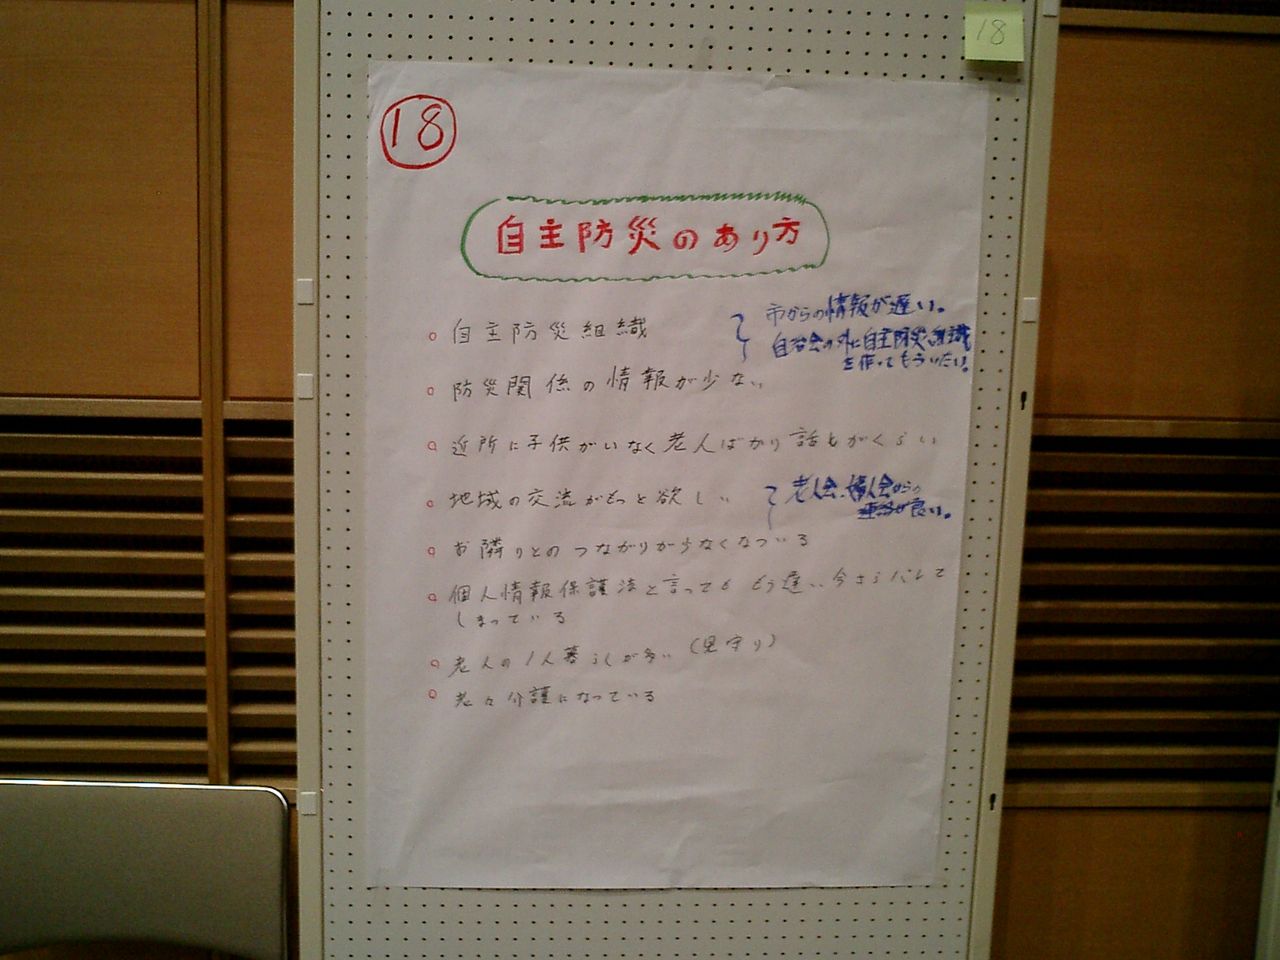 18
18
自主防災のあり方
○ 自主防災組織
市からの情報が遅い。
自治会の外に自主防災組織
を作ってもらいたい。
○ 防災関係の情報が少ない
○ 近所に子供がいなく老人ばかり 話もがくらい
○ 地域の交流がもっと欲しい
老人会、婦人会からの
連絡が良い。
○ お隣りとのつながりが少なくなっている
○ 個人情報保護法と言っても もう遅い、今さらバレて
しまっている
○ 老人の1人暮らしが多い (見守り)
○ 老々介護になっている